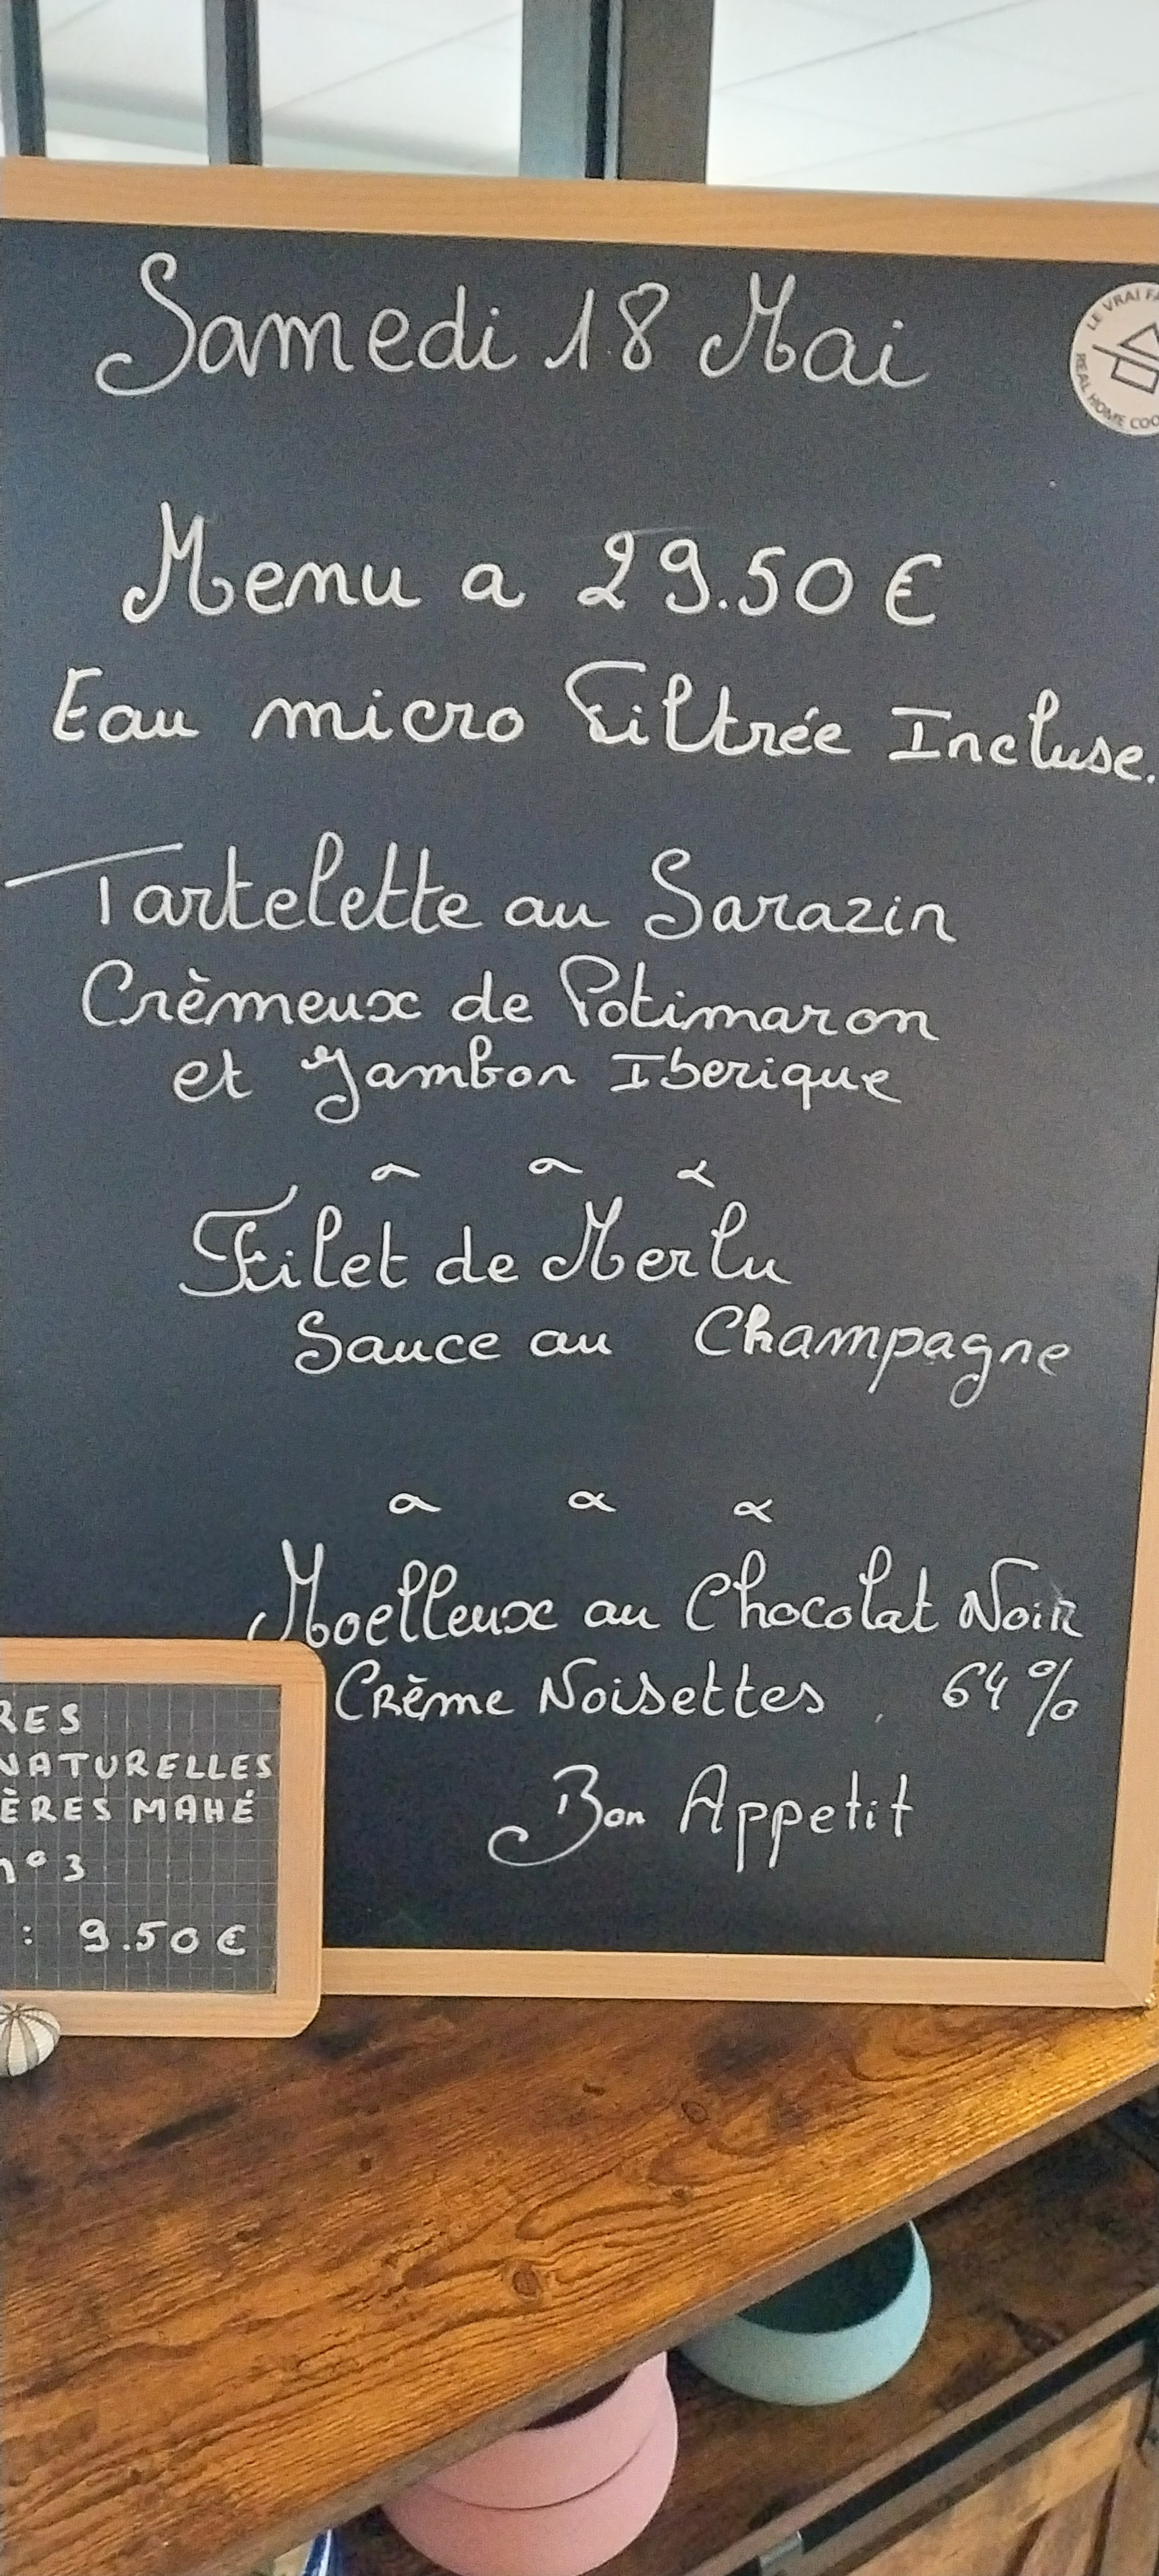 Samedi 18 Mai
LE VRAI FA
REAL HOME COO
Menu a 29.50 €
Eau micro Filtrée Incluse.
Tartelette au Sarazin
Crèmeux de Potimaron
et Jambon Iberique
Filet de Merlu
Sauce au Champagne
Moelleux au Chocolat Noir
Crème Noisettes, 64%
Bon Appetit
RES
NATURELLES
ÈRES MAHÉ
n° 3
: 9.50 €